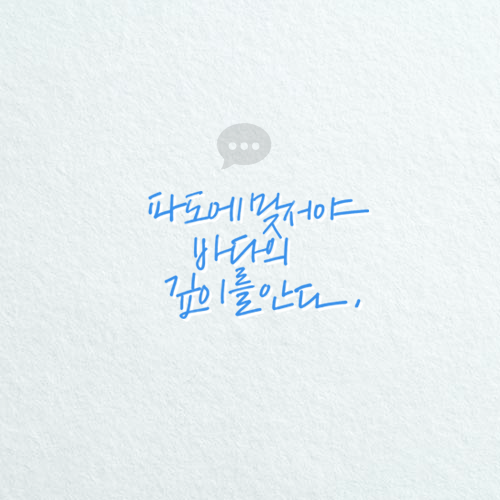 파도에 맞서야
바다의
깊이를 안다,